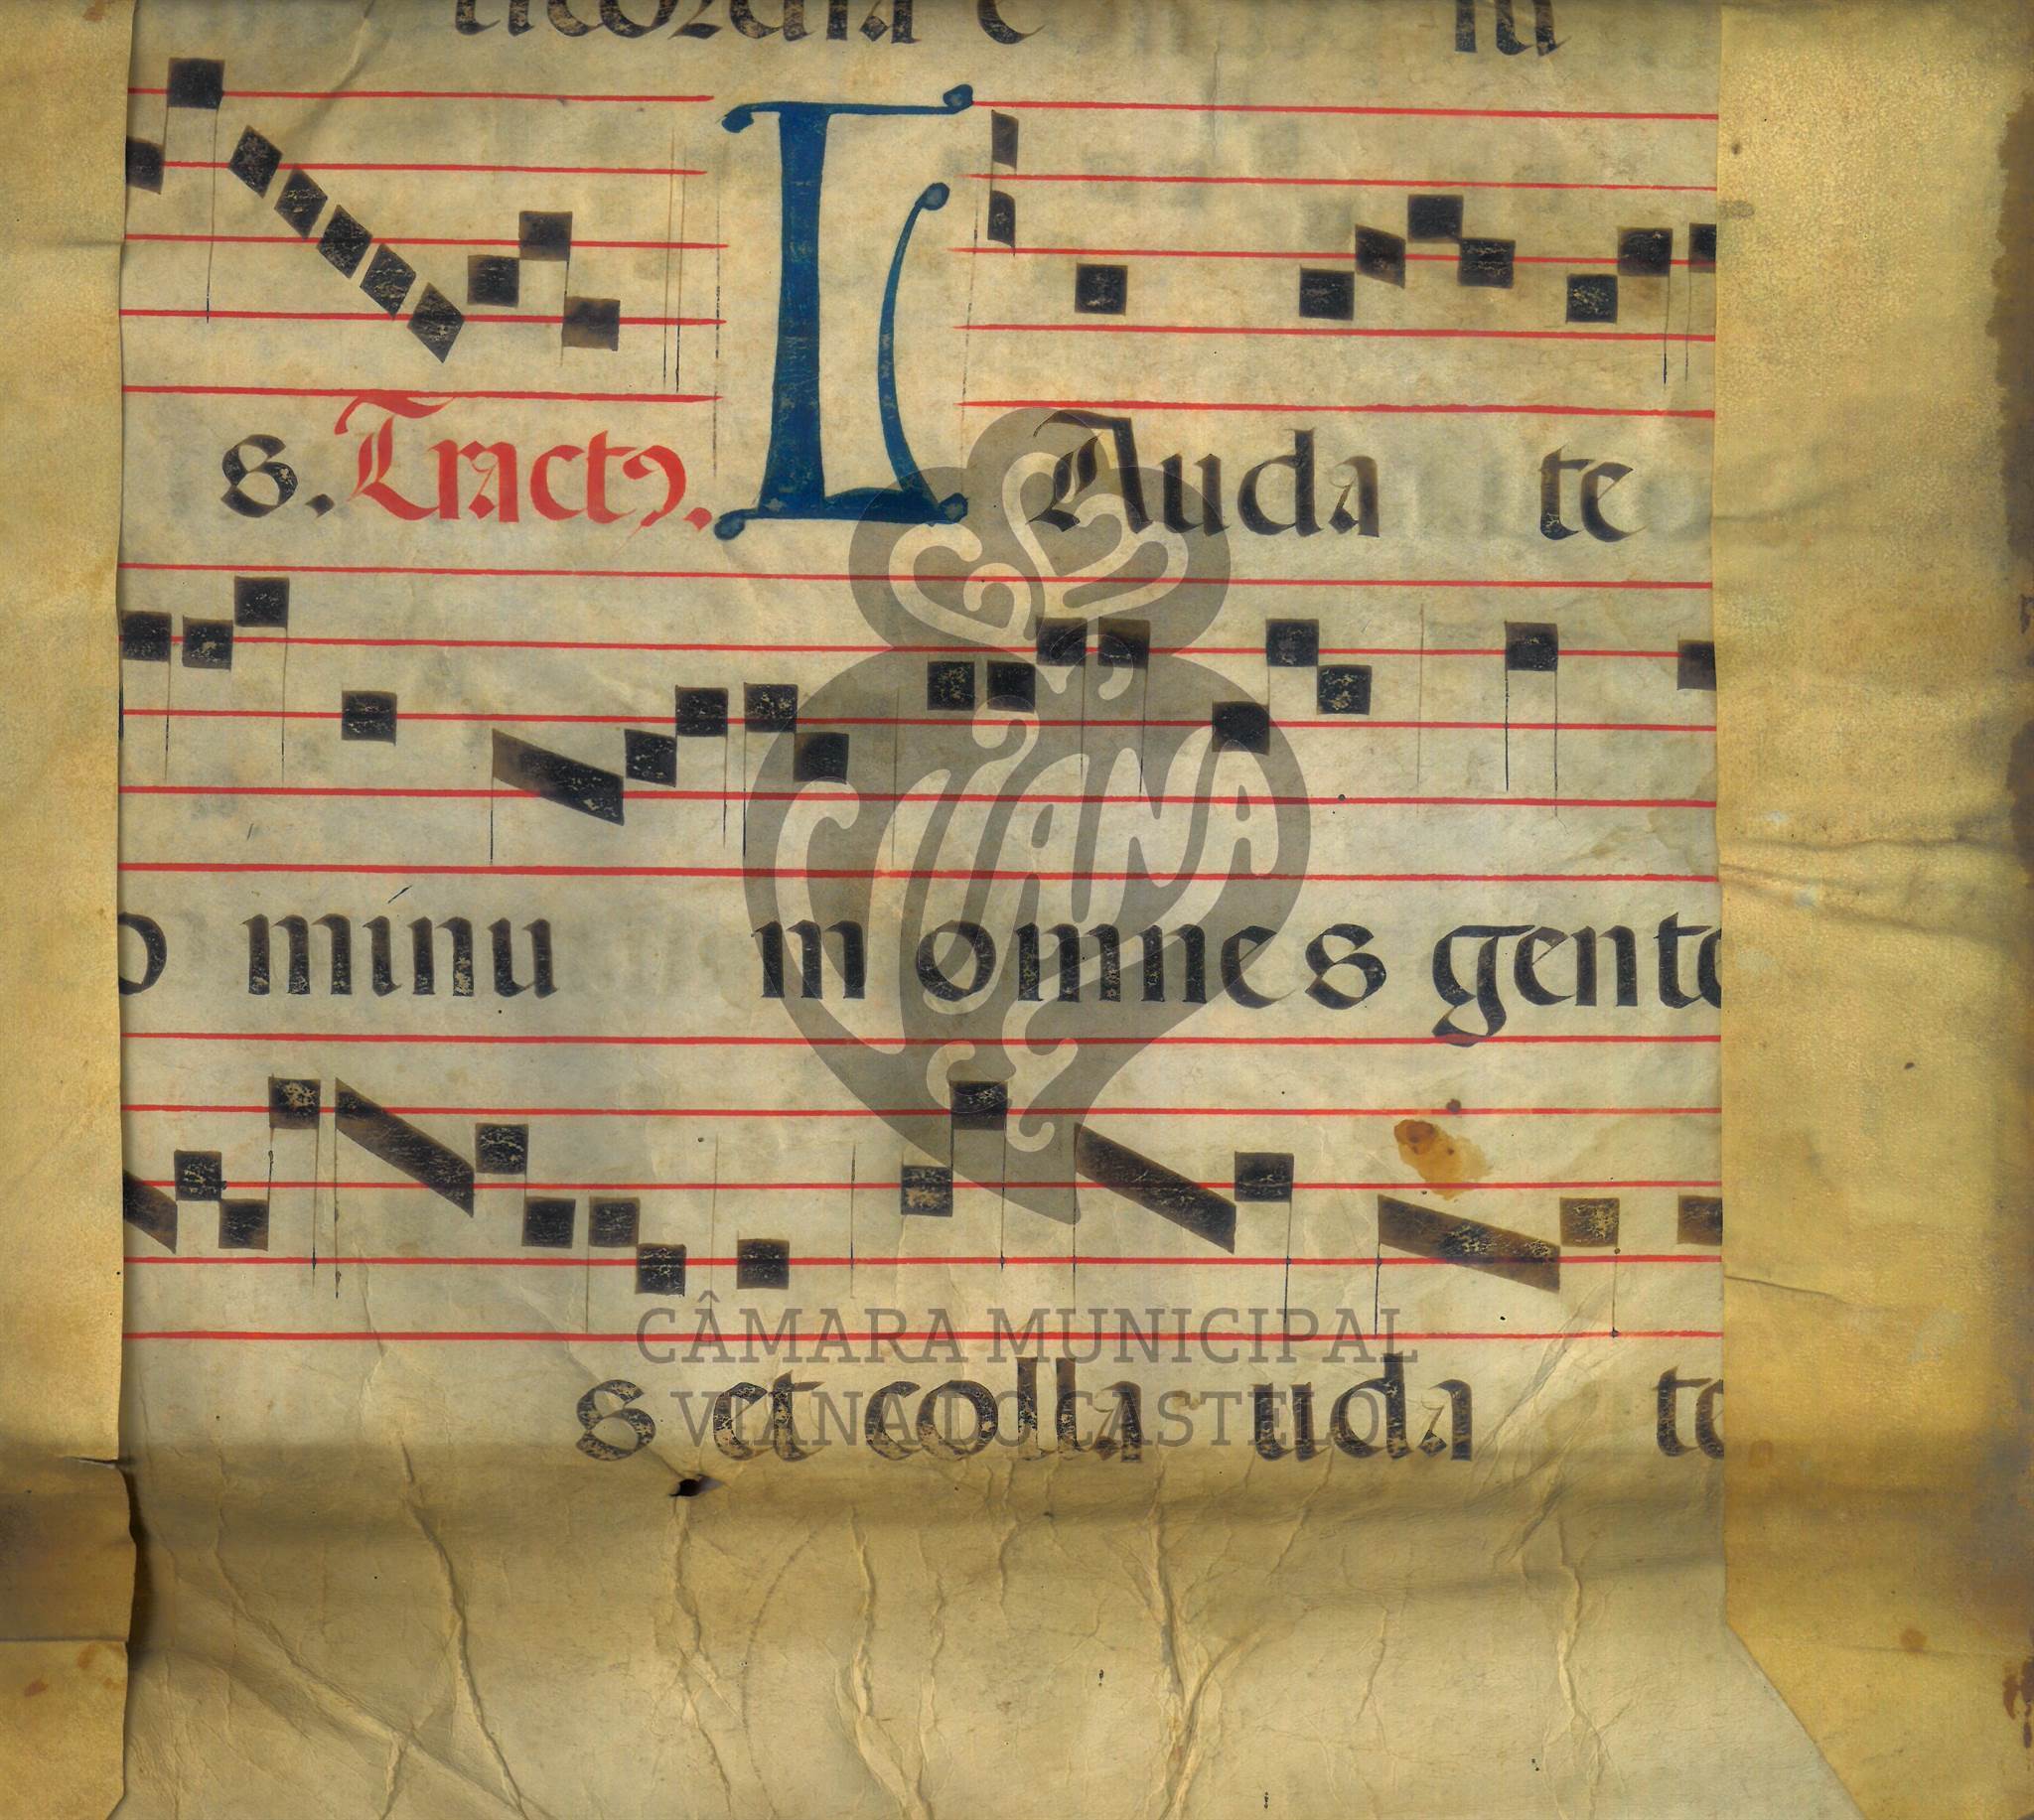 s. Tractꝰ. LAuda te
o minu m omnes gente
s et colla uda te
VIANA
CÂMARA MUNICIPAL
VIANA DO CASTELO